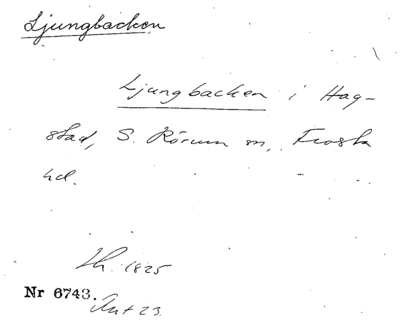 Ljungbacken
Ljungbacken i Hag-
stad, S. Rörum sn, Frosta
hd.
1825
Nr 6743.
Ant 23.